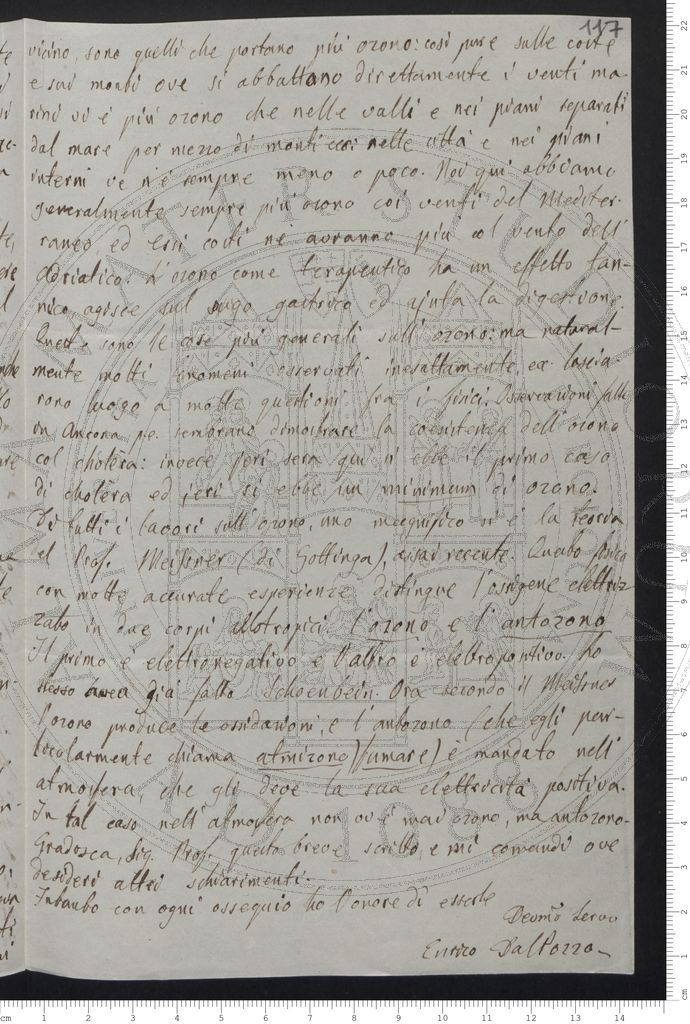 117
vicino, sono quelli che portano più ozono: così pure sulle coste
e sui monti ove si abbattano direttamente i venti ma-
rini vi è più ozono che nelle valli e nei piani separati
dal mare per mezzo di monti ecc: nelle città e nei piani
interni ve n'è sempre meno o poco. Noi qui abbiamo
generalmente sempre più ozono coi venti del Mediter-
raneo, ed essi costì ne avranno più col vento dell'
Adriatico. L'ozono come terapeutico ha un effetto
nico, agisce sul sugo gastrico ed ajuta la digestione.
Queste sono le cose più generali sull'ozono: ma natural-
mente molti fenomeni osservati inesattamente, lascia-
rono luogo a molte questioni fra i fisici. Osservazioni fatte
in Ancona pe. sembrano dimostrare la coesistenza dell'ozono
col cholèra: invece jeri sera qui si ebbe il primo caso
di cholèra ed jeri si ebbe un minimum di ozono.
Di tutti i lavori sull'ozono, uno magnifico si è la teoria
del Prof. Meissner (di Gottinga), assai recente. Questo fisico
con molte accurate esperienze distingue l'ossigene elettriz-
zato in due corpi allotropici: l'ozono e l'antozono
Il primo è elettronegativo e l'altro è elettropositivo. Ciò
stesso avea già fatto Schoenbein. Ora secondo il Meissner
l'ozono produce le ossidazioni, e l'antozono (che egli par-
ticolarmente chiama atmizono) (fumare) è mandato nell'
atmosfera, che gli deve la sua elettricità positiva.
In tal caso nell'atmosfera non ov'è mai ozono, ma antozono.
Gradisca, Sig. Prof., questo breve scritto, e mi comandi ove
desideri altri schiarimenti.
Intanto con ogni ossequio ho l'onore di esserle
Devmo Servo
Enrico DalPozzo